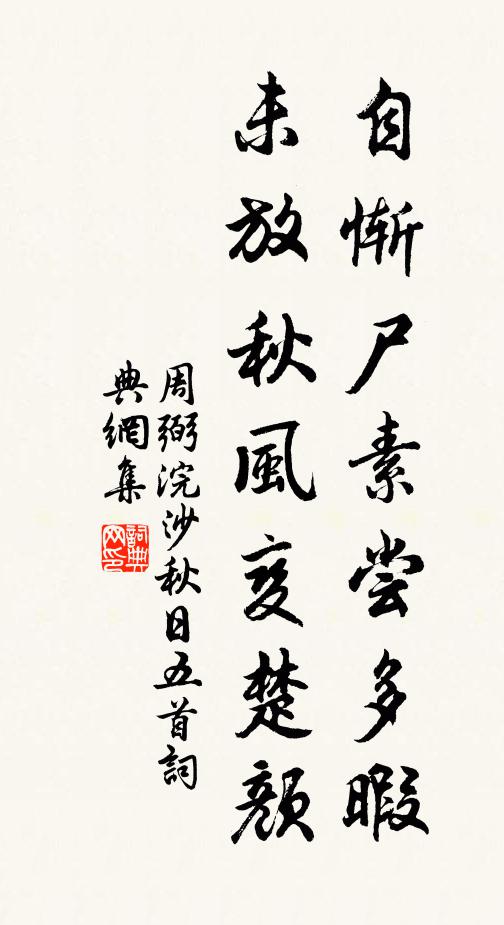 自惭尸素尝多暇
未放秋風变楚颜
周弼浣沙秋日五首詞
典網集
詞典
网印